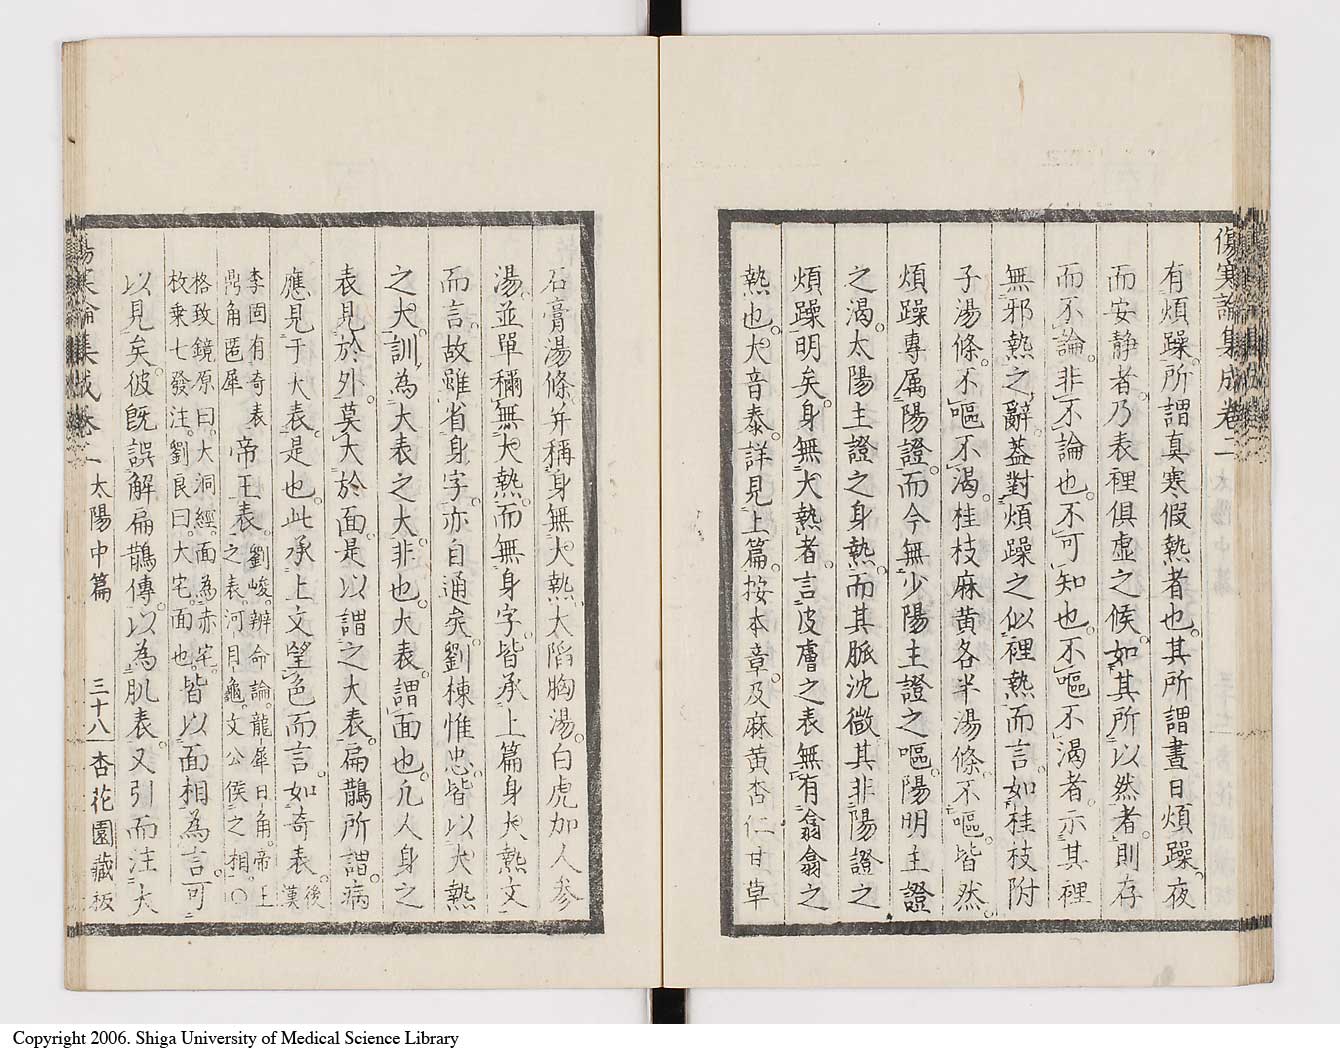 傷寒論集成卷二
有煩躁。所謂真寒假熱者也。其所謂晝日煩躁。夜
而安靜者。乃表裡俱虛之候。如其所以然者。則存
而不論。非不論也。不可知也。不嘔不渴者。示其裡
無邪熱之辭。蓋對煩躁之似裡熱而言。如桂枝附
子湯條。不嘔不渴。桂枝麻黄各半湯條。不嘔。皆然。
煩躁專属陽證。而今無少陽主證之嘔。陽明主證
之渴。太陽主證之身熱。而其脈沈微。其非陽證之
煩躁明矣。身無大熱者。言皮膚之表無有翕翕之
熱也。大音泰。詳見上篇。按本章。及麻黄杏仁甘草
石膏湯條。并稱身無大熱。大陷胸湯。白虎加人参
湯。並單稱無大熱。而無身字。皆承上篇身大熱文
而言。故雖省身字。亦自通矣。劉棟惟忠。皆以大熱
之大。訓為大表之大。非也。大表。謂面也。凡人身之
表見於外。莫大於面。是以謂之大表。扁鵲所謂病
應見于大表。是也。此承上文望色而言。如奇表。後漢
李固有奇表
鼎角匿犀
帝王表。劉峻。辨命論。龍犀日角。帝王
之表。河目龜文公侯之相。〇
格致鏡原曰。大洞經。面為赤宅。
枚乗七發注。劉良曰。大宅。面也。
皆以面相為言。可
以見矣。彼既誤解扁鵲傳。以為肌表。又引而注大
太陽中篇
三十八
杏花園藏板